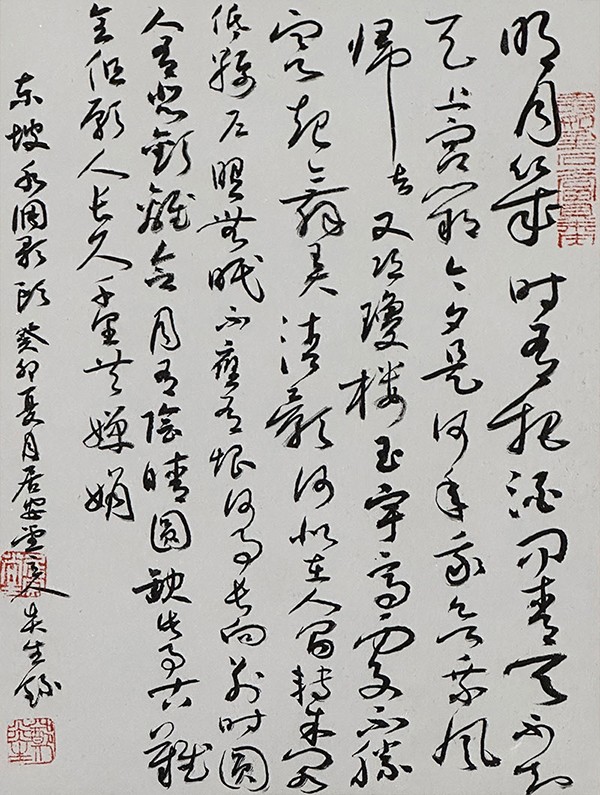 明月幾时有把酒问青天不知
天上宫阙今夕是何年我欲乘风
归去又恐瓊楼玉宇高处不胜
寒起舞弄清影何似在人间转朱阁
低绮户照无眠不应有恨何事长向别时圆
人有悲歡離合月有陰晴圆缺此事古難
全但願人长久千里共嬋娟
东坡水调歌头 癸卯夏月居安堂主人